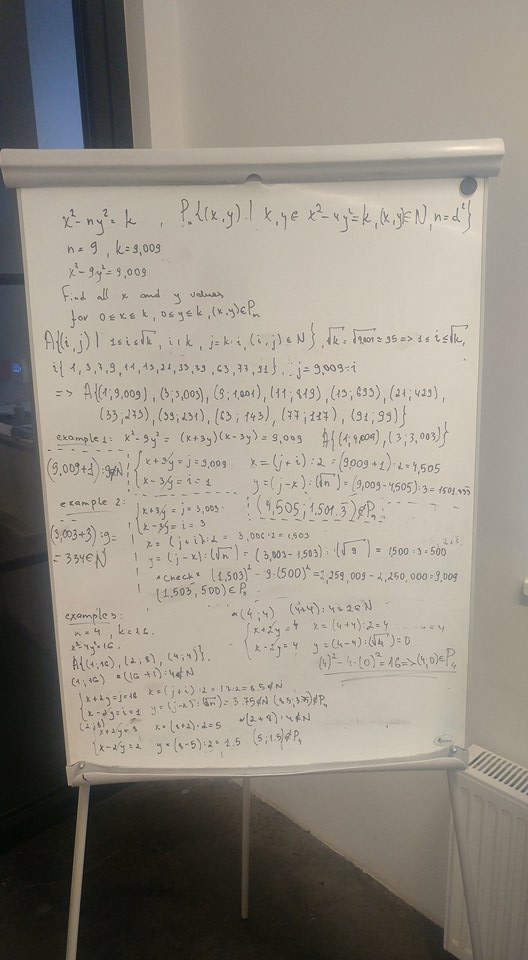 x² - ny² = k , Pₙ{(x,y) | x,y ∈ x² - ny² = k, (x,y) ∈ N, n = d²}
n = 9 , k = 9,009
x² - 9y² = 9,009
Find all x and y values
for 0 ≤ x ≤ k, 0 ≤ y ≤ k, (x,y) ∈ Pₙ
A{(i,j) | 1 ≤ i ≤ √k, i | k, j = k:i, (i,j) ∈ N}, √k = √9,009 ≈ 95 => 1 ≤ i ≤ √k,
i{1,3,7,9,11,13,21,33,39,63,77,91}, j = 9,009÷i
=> A{(1;9,009), (3;3,003), (9;1,001), (11;819), (13;693), (21;429),
(33;273), (39;231), (63;143), (77;117), (91;99)}
example 1: x² - 9y² = (x+3y)(x-3y) = 9,009 A{(1;9,009), (3;3,003)}
(9,009+1):9∉N { x+3y = j = 9,009 x = (j+i):2 = (9,009+1):2 = 4,505
x-3y = i = 1 y = (j-x):(√n) = (9,009-4,505):3 = 1501.333
example 2: (4,505; 1,501.3) ∉ Pₙ
{ x+3y = j = 3,003
x-3y = i = 3
(3,003+3):9 = 334 ∈ N
x = (j+i):2 = 3,006:2 = 1,503
y = (j-x):(√n) = (3,003-1,503):(√9) = 1500:3 = 500
*check* (1,503)² - 9·(500)² = 2,259,009 - 2,250,000 = 9,009
(1,503, 500) ∈ Pₙ
example 3:
n = 4, k = 16.
x² - 4y² = 16.
A{(1,16), (2,8), (4;4)}.
(1,16) *(16+1):4∉N
{ x+2y = j = 16 x = (j+i):2 = 17:2 = 8.5∉N
x-2y = i = 1 y = (j-x):(√n) = 3.75∉N (8.5, 3.75)∉P₄
(2;8)
{ x+2y = 8 x = (8+2):2 = 5 *(2+8):4∉N
x-2y = 2 y = (8-5):2 = 1.5 (5;1.5)∉P₄
*(4;4) (4+4):4 = 2∈N
{ x+2y = 4 x = (4+4):2 = 4
x-2y = 4 y = (4-4):(√4) = 0
(4)² - 4·(0)² = 16 => (4,0) ∈ P₄